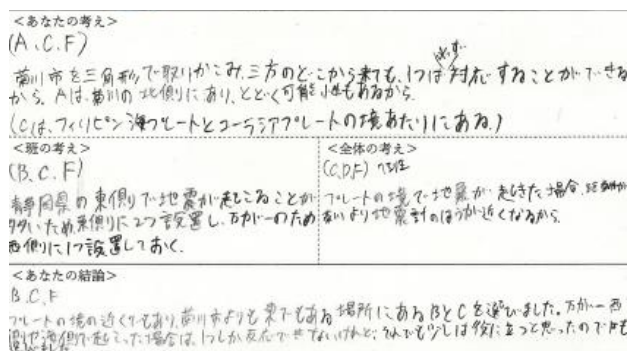 <あなたの考え>
(A.C.F)
必ず
菊川市を三角形で取りかこみ、三方のどこから来ても、1つは対応することができる
から。Aは、菊川の北側にあり、とどく可能性もあるから。
(Cは、フィリピン海プレートとユーラシアプレートの境あたりにある。)
<班の考え>
(B.C.F)
静岡県の東側で地震が起こることが
多いため東側に2つ設置し、万が一のため
西側に1つ設置しておく。
<全体の考え>
(C,D,F)
プレートの境で地震が起きた場合、
より地震計のほうが近くなるから。
<あなたの結論>
B.C.F
プレートの境の近くでもあり、菊川市よりも東でもある場所にあるBとCを選びました。万が一西
側で起こった場合は、1つしか反応できないけれど、それでも少しは役に立つと思ったので